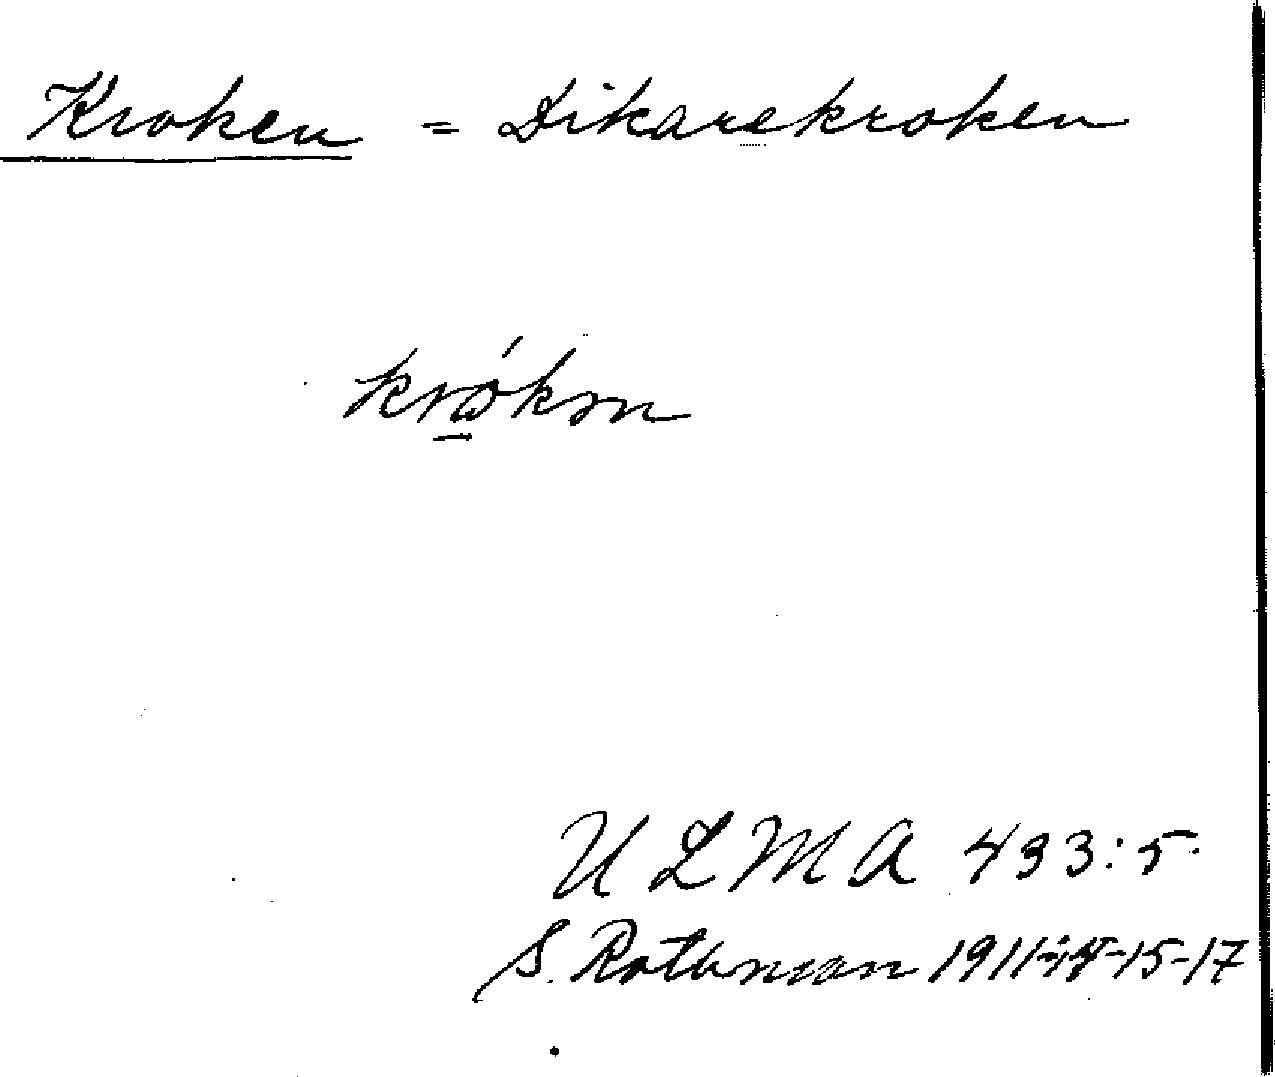 Kroken = Dikarekroken
krókən
ULMA 493:5.
S. Rothman 1911-14-15-17